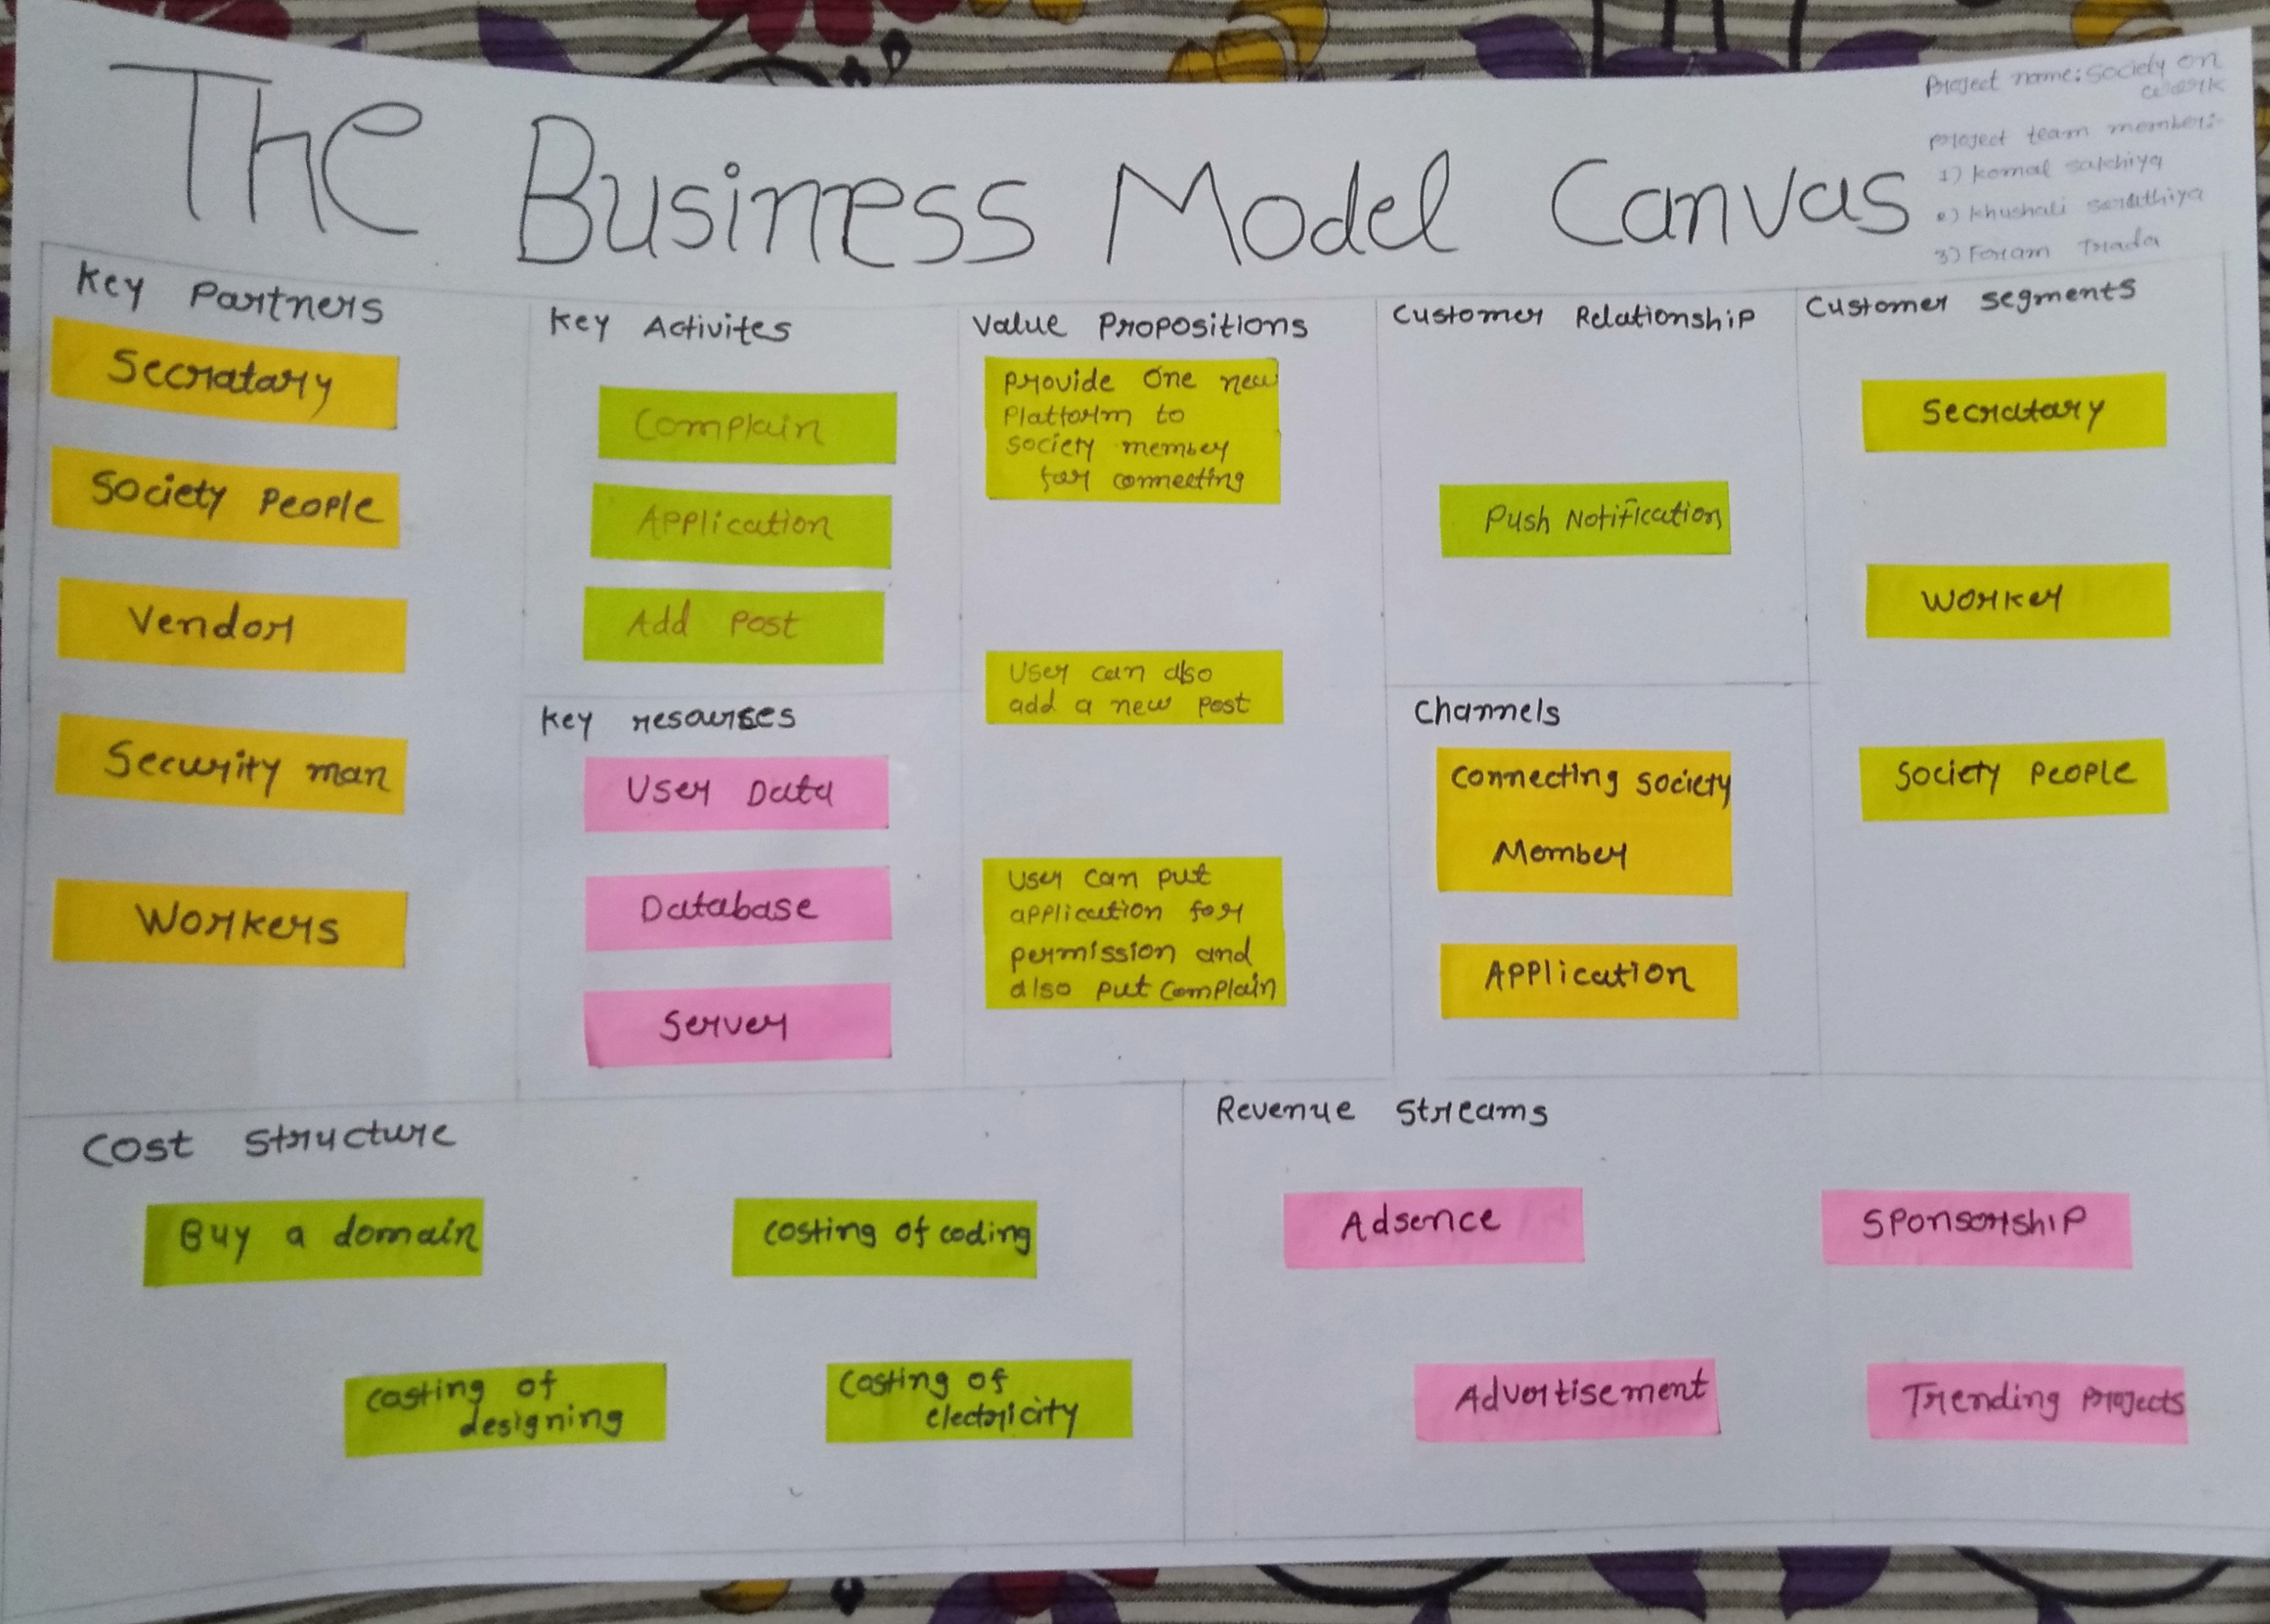 The Business Model Canvas
Project name: Society on
work
Project team member:-
1) Komal
2) Khushali
3) Foram Trada
Key Partners
Secratary
Society People
Vendor
Security man
Workers
Key Activites
Complain
Application
Add Post
Key resourses
User Data
Database
Server
Value Propositions
Provide one new
Platform to
society member
for connecting
User can also
add a new post
User can put
application for
permission and
also put complain
Customer Relationship
Push Notification
Channels
Connecting Society
Member
Application
Customer Segments
Secratary
Worker
Society People
Cost Structure
Buy a domain
Costing of coding
Costing of
designing
Costing of
electricity
Revenue Streams
Adsence
Sponsorship
Advertisement
Trending Projects